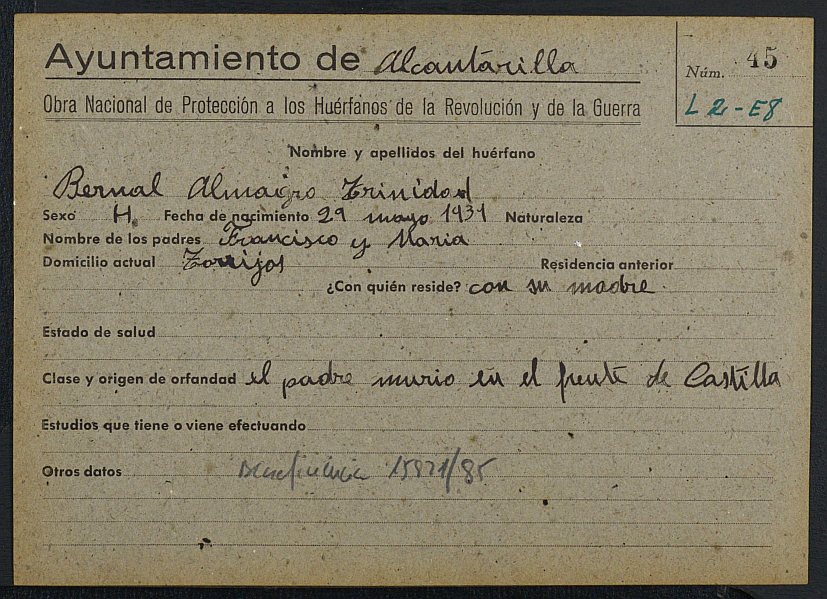 Ayuntamiento de Alcantarilla
Núm. 45
L 2-E8
Obra Nacional de Protección a los Huérfanos de la Revolución y de la Guerra
Nombre y apellidos del huérfano
Bernal Almagro Trinidad
Sexo H. Fecha de nacimiento 29 mayo 1931 Naturaleza
Nombre de los padres Francisco y Maria
Domicilio actual Torrijos Residencia anterior
¿Con quién reside? con su madre
Estado de salud
Clase y origen de orfandad el padre murio en el frente de Castilla
Estudios que tiene o viene efectuando
Otros datos Beneficencia